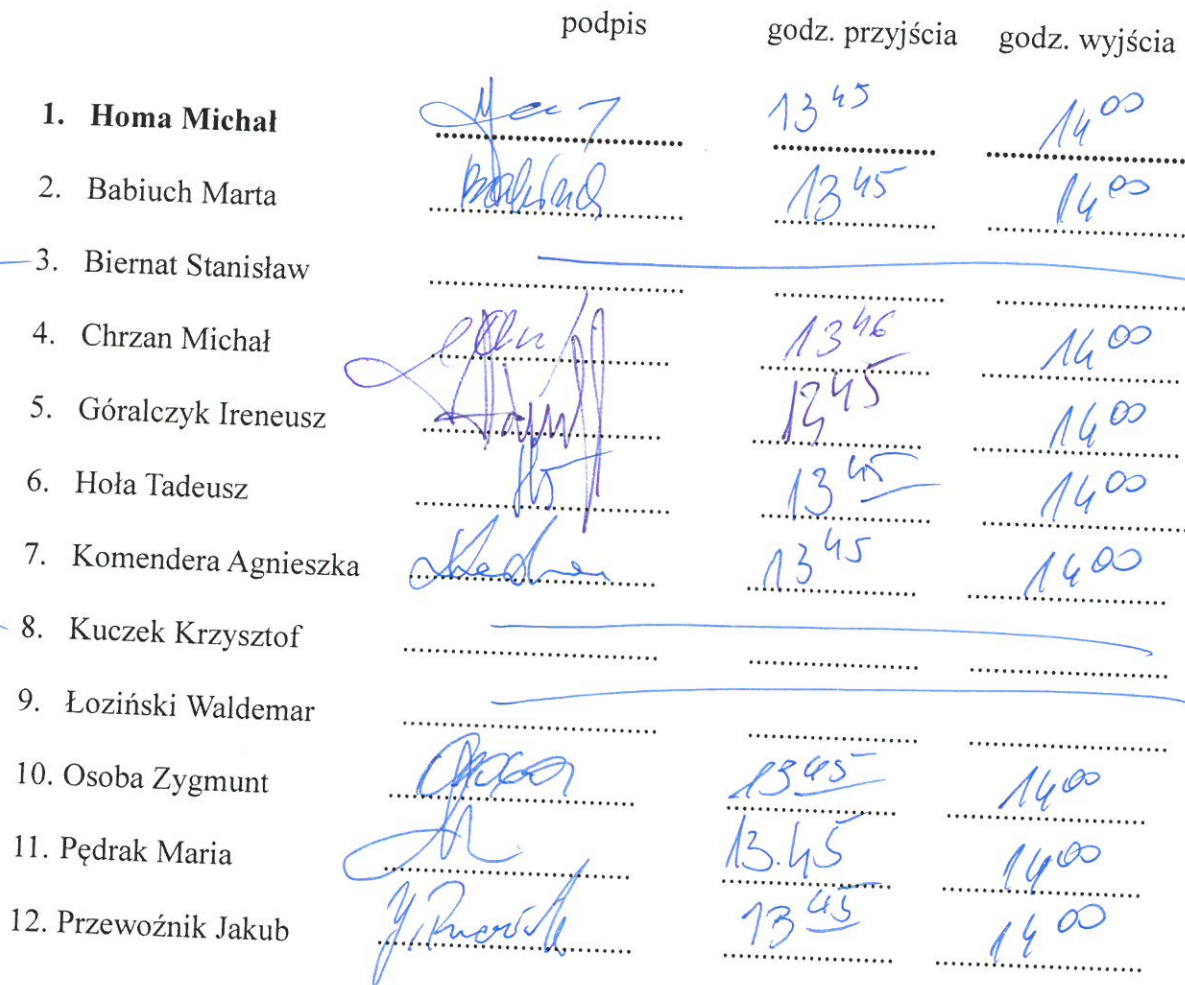 podpis godz. przyjścia godz. wyjścia
1. Homa Michał 13 45 14 00
2. Babiuch Marta Babiuch 13 45 14 00
3. Biernat Stanisław
4. Chrzan Michał 13 46 14 00
5. Góralczyk Ireneusz 13 45 14 00
6. Hoła Tadeusz 13 45 14 00
7. Komendera Agnieszka 13 45 14 00
8. Kuczek Krzysztof
9. Łoziński Waldemar
10. Osoba Zygmunt 13 45 14 00
11. Pędrak Maria 13.45 14 00
12. Przewoźnik Jakub 13 45 14 00